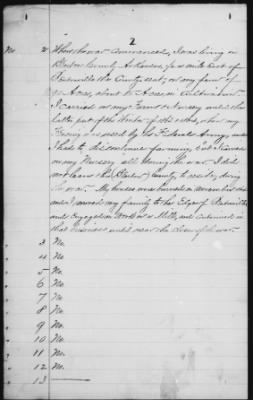 2
No. 2 When the war commenced, I was living in
Benton County Arkansas, four miles East of
Bentonville the County seat, on my farm of
90 Acres, about 40 Acres in Cultivation
I carried on my Farm & Nursery until the
latter part of the Winter of 1861 & 1862, when my
Fencing was used by the Federal Army, and
I had to discontinue farming, but I carried
on my Nursery all during the war. I did
not leave the (Benton) County to reside, during
the war. My house was burned
and I moved my family to the Edge of Bentonville
and engaged in Mills, and continued in
that business until near the close of the war.
3 No.
4 No.
5 No.
6 No.
7 No.
8 No.
9 No.
10 No.
11 No.
12 No.
13